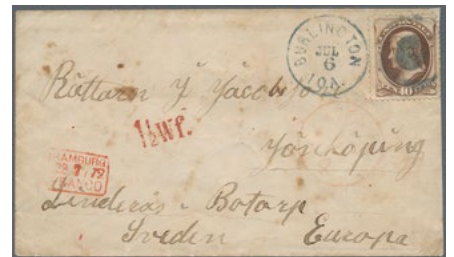 BURLINGTON
JUL
6
IOA.
Rüttarn J Jacobson
1½Wf.
Jönköping
HAMBURG
FRANCO
Linderås - Botorp
Sveden Europa